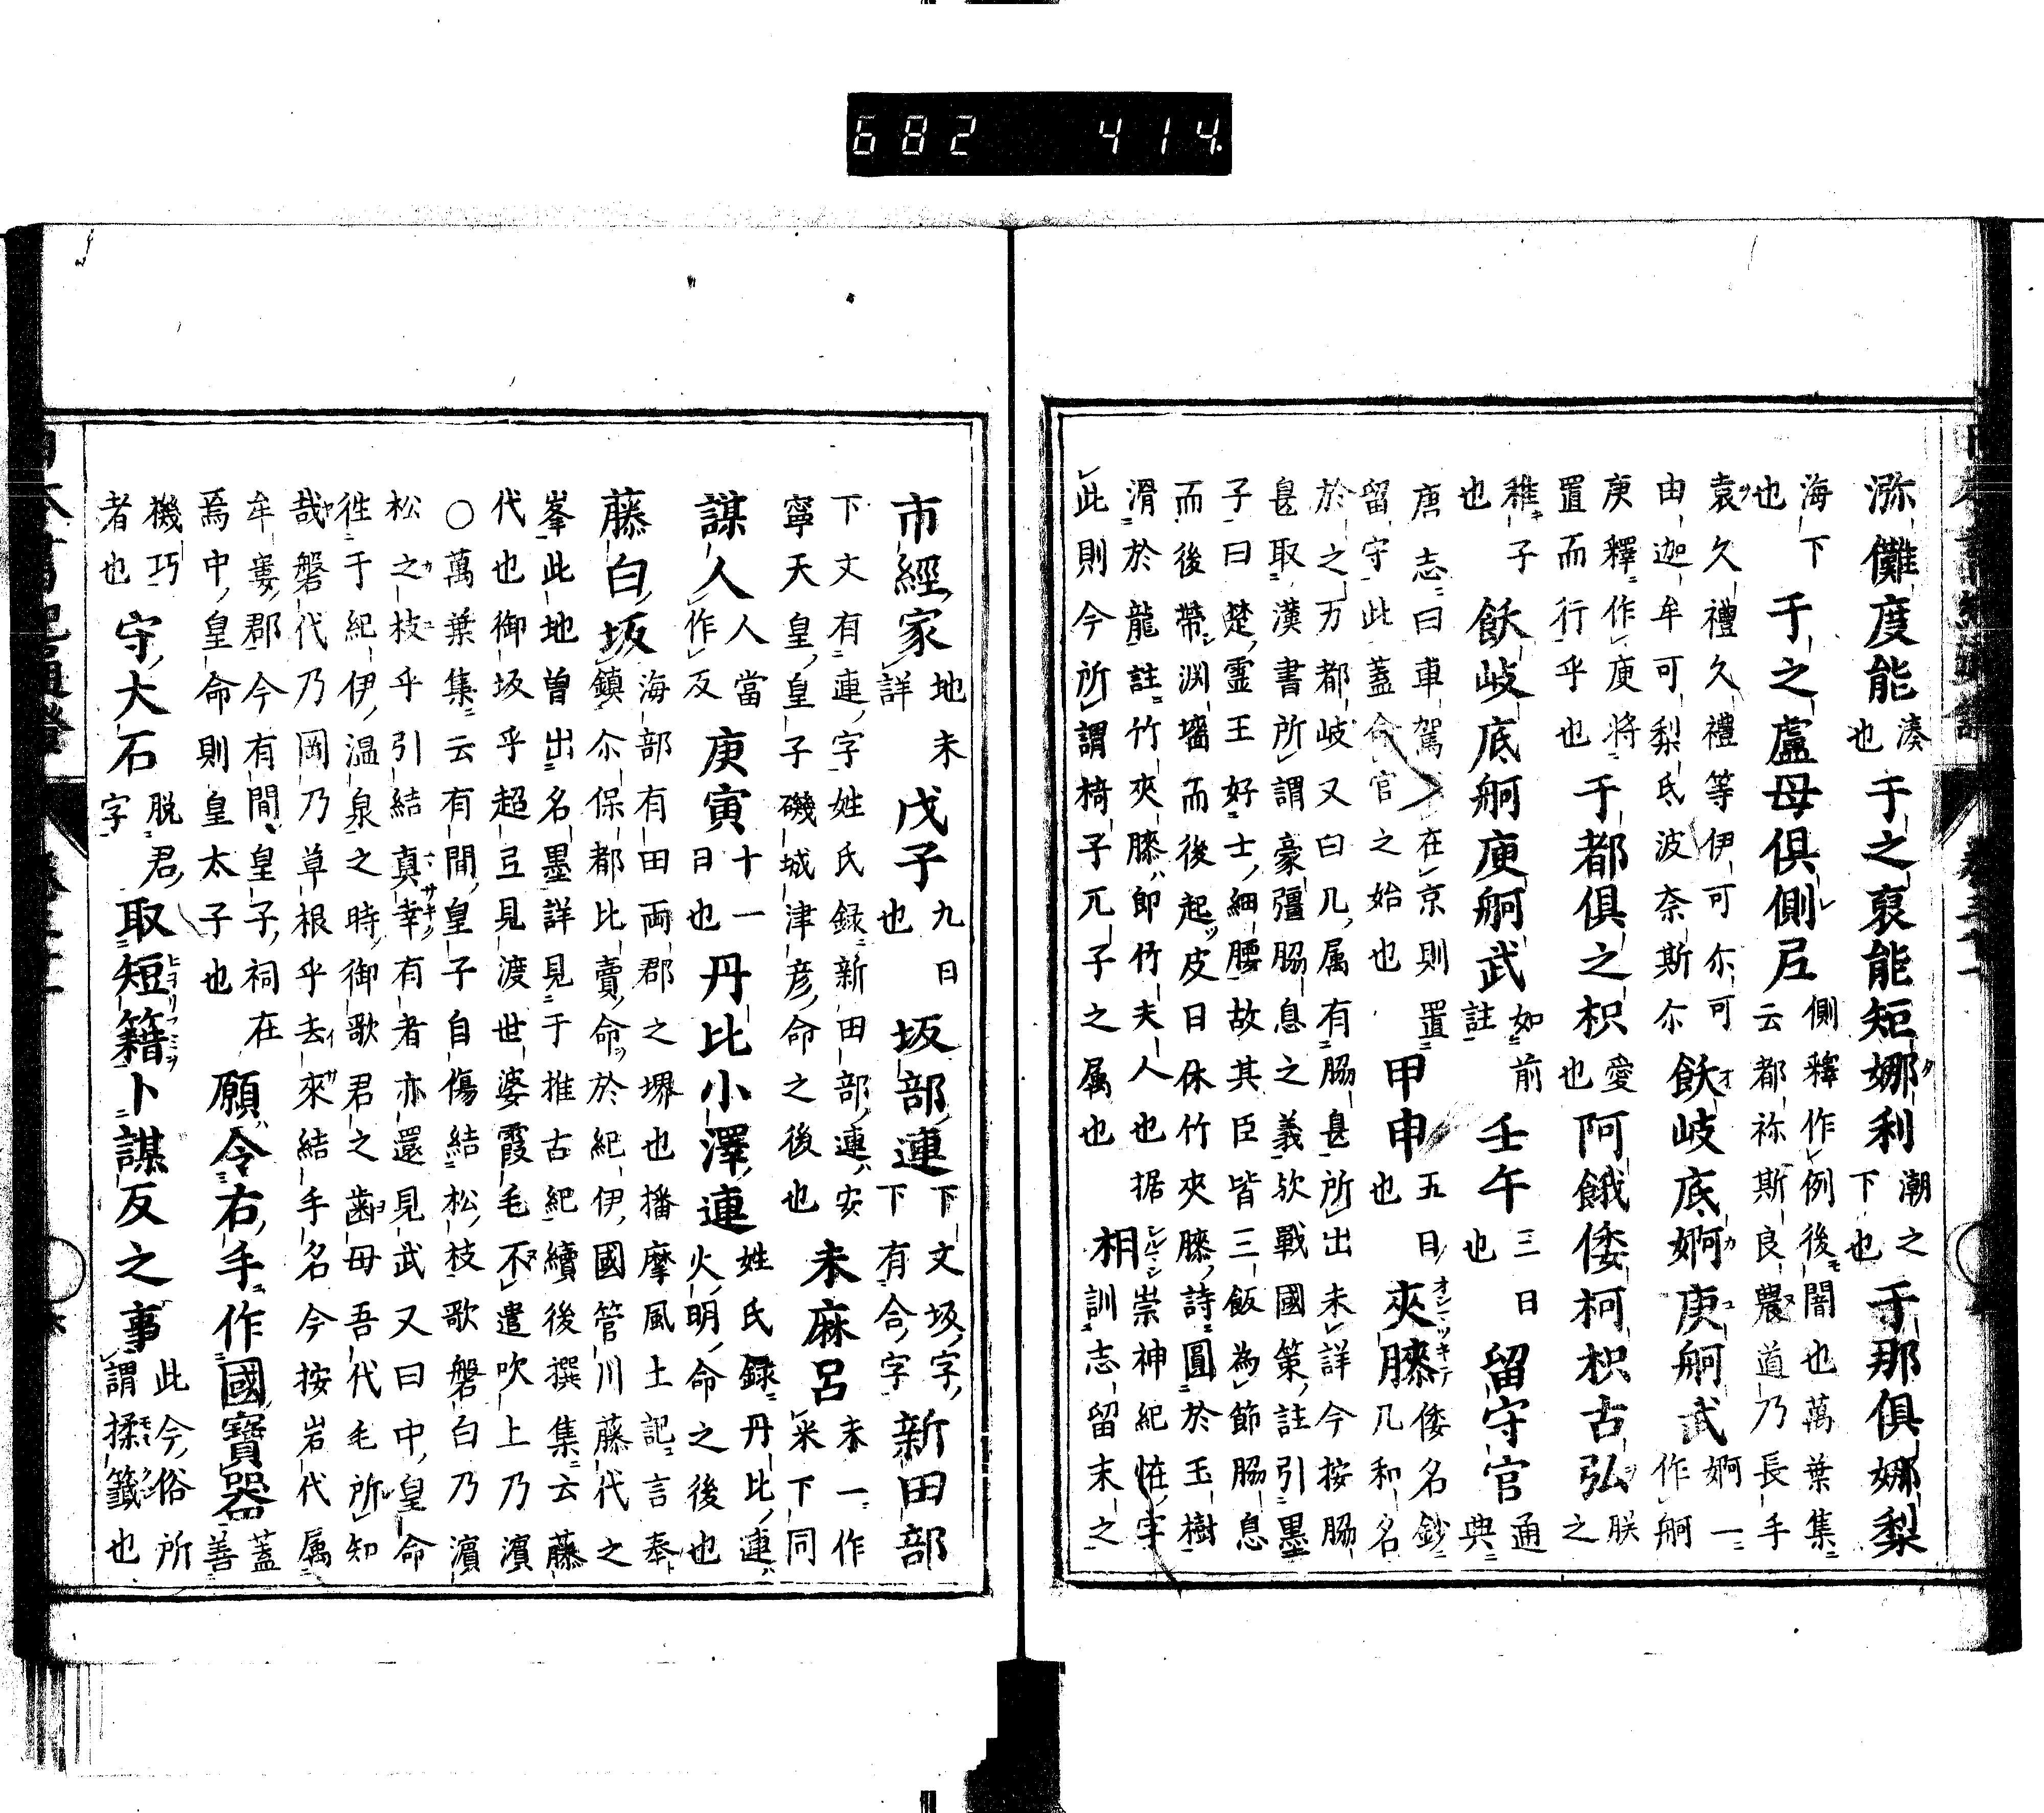 682 414.
瀰儺度能湊也于之裒能矩娜利潮之下也于那俱娜梨
海下也于之盧母俱側尼側釋作例後闇也萬葉集云都祢斯良農道乃長手
袁久禮久禮等伊可尓可由迦牟可梨氏波奈斯尓飫岐底婀庚舸武婀一作舸
庚釋作庚將置而行乎也于都俱之枳愛也阿餓倭柯枳古弘朕之
稚子也飫岐底舸庚舸武如前註壬午三日也留守官通典
唐志曰車駕在京則置留守此蓋令官之始也甲申五日也夾膝倭名鈔几和名
於之万都岐又曰几属有脇息所出未詳今按脇
息取漢書所謂豪彊脇息之義欤戰國策註引墨
子曰楚靈王好士細腰故其臣皆三飯為節脇息
而後帶淵墻而後起皮日休竹夾膝詩圓於玉樹
滑於龍註竹夾膝即竹夫人也据崇神紀恠字
此則今所謂椅子兀子之属也相訓志留末之
市經家地未詳戊子九日也坂部連下文坂字下有合字新田部
下文有連字姓氏録新田部連安寧天皇皇子磯城津彦命之後也未麻呂未一作米下同
謀人人當作反庚寅十一日也丹比小澤連姓氏録丹比連火明命之後也
藤白坂海部有田両郡之堺也播摩風土記言奉鎮尓保都比賣命於紀伊國管川藤代之
峯此地曾出名墨詳見于推古紀續後撰集云藤
代也御坂乎超弖見渡世婆霞毛不遣吹上乃濱
○萬葉集云有間皇子自傷結松枝歌磐白乃濱
松之枝乎引結真幸有者亦還見武又曰中皇命
徃于紀伊温泉之時御歌君之齒母吾代毛所知
哉磐代乃岡乃草根乎去來結手名今按岩代属
牟婁郡今有間皇子祠在焉中皇命則皇太子也願令右手作國寶器蓋善
機巧者也守大石脱君字取短籍卜謀反之事此今俗所謂揉籤也